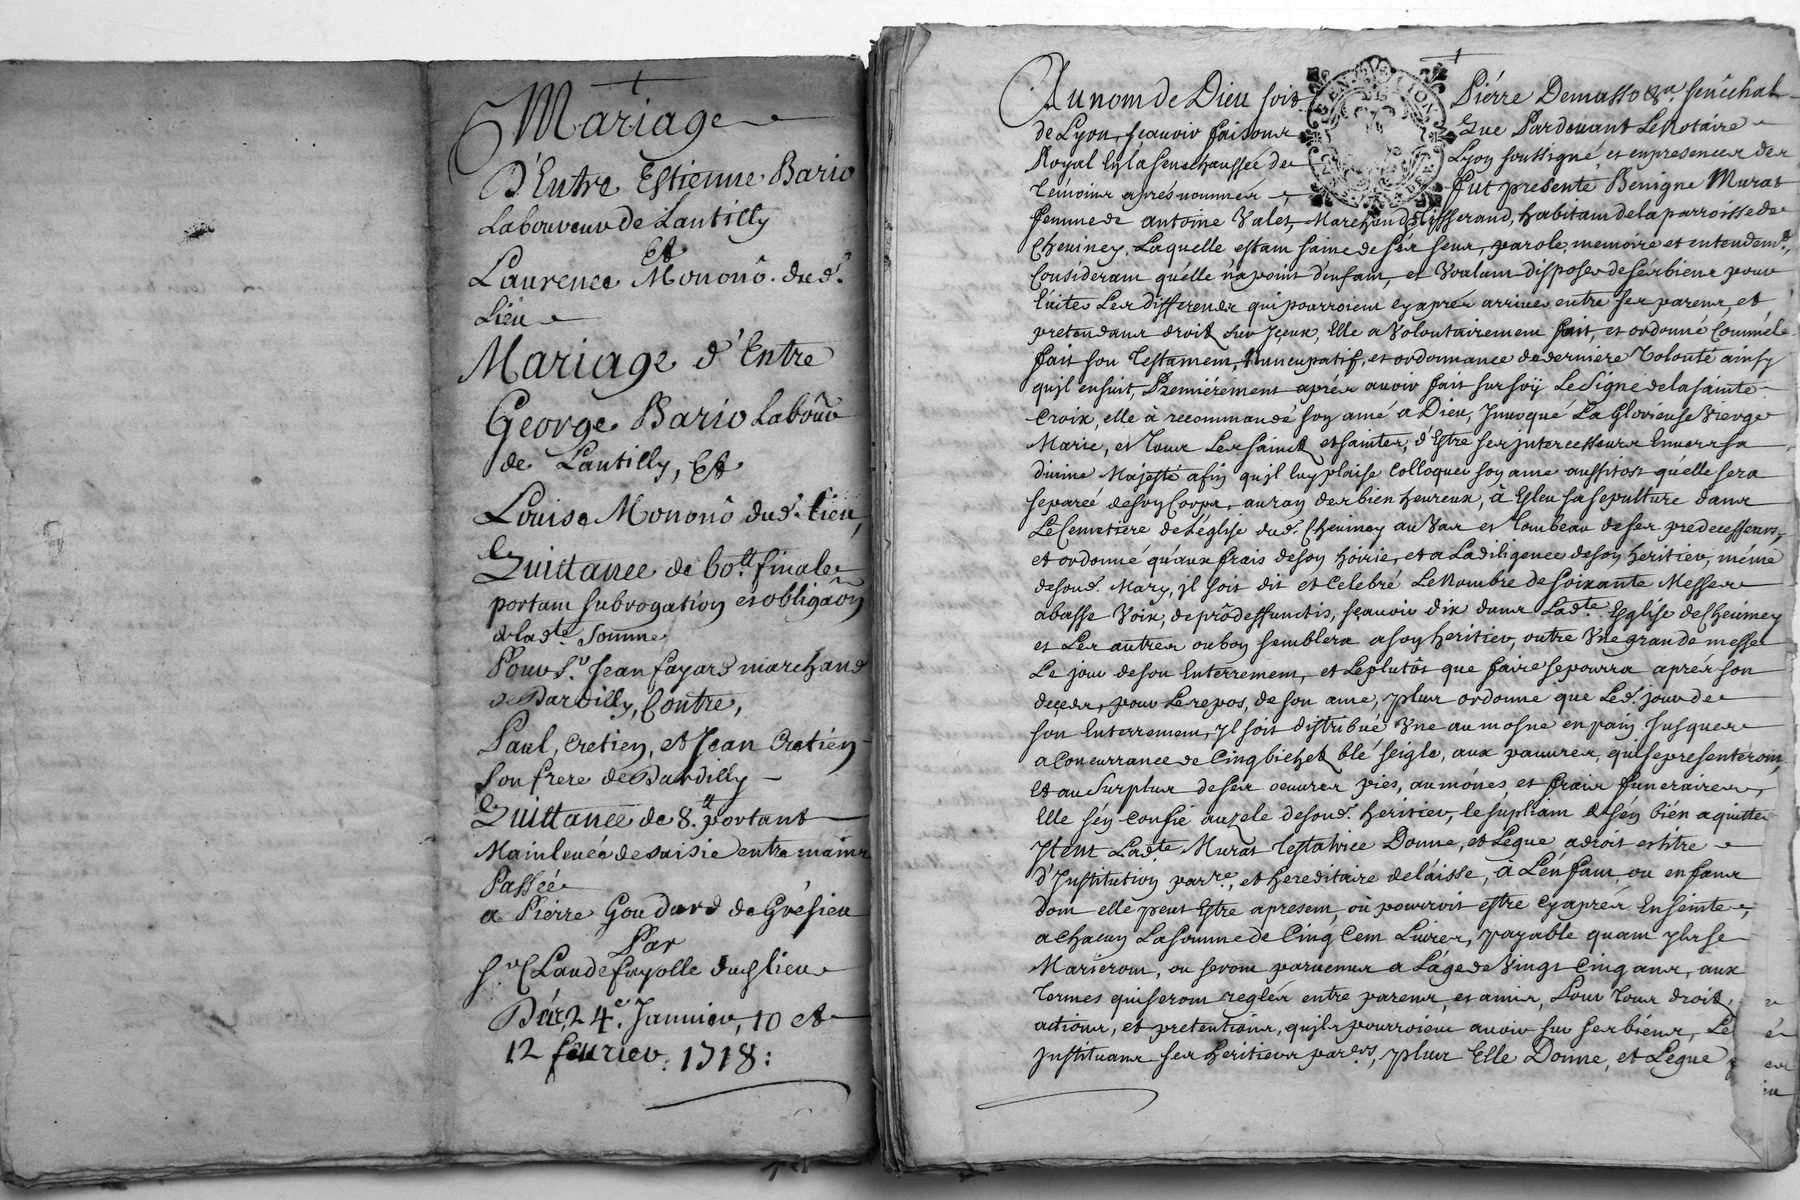 Mariage
D'Entre Estienne Bario
Laboureur de Lantilly
Et
Laurence Mononô. dud.
Lieu
Mariage d'Entre
George Bario Labour
de Lantilly, Et
Louise Mononô dud. Lieu,
Quittance de 60.tt finale
portant subrogation et obligaôn
de lad.te somme
Pour S.r Jean fayard marchand
de Dardilly, Contre,
Paul, Cretien, et Jean Cretien
son frere de Dardilly
Quittance de 8.tt portant
Mainlevée de saisie entre mains
Passée
a Pierre Goudard de Grésieu
Par
S.r Claude fayolle dud lieu
Des 24.e Janvier, 10 et
12 fevrier. 1718:
Au nom de Dieu soit Pierre Demasso &.a senêchal
de Lyon, sçavoir faisons Que Pardevant Le Notaire
Royal En la senechaussée de Lyon soussigné, et en presence des
temoins aprés nommés, fut presente Benigne Murat
femme de antoine Valet, Marchand tisserand, habitant de la parroisse de
Cheviney, Laquelle estant saine de ses sens, parole, memoire et entendem.t,
Considerant qu'elle n'a point d'enfant, et Voulant disposer de ses biens pour
Eviter Les differends qui pourroient cy aprés arriver entre ses parens, et
pretendans droit sur Iceux, Elle a Volontairement fait, et ordonné Comm'elle
fait son testament Nuncupatif, et ordonnance de derniere Volonté ainsy
qu'il ensuit, Premiérement aprés avoir fait sur soy Le Signe de la sainte
Croix, elle à recommandé son ame a Dieu, Invoqué La Glorieuse Vierge
Marie, et tous Les saincts et saintes, d'Estre ses intercesseurs Envers sa
divine Majesté afin qu'il luy plaise Colloquer son ame aussitost qu'elle sera
separée de son Corps, au rang des bien heureux, à Esleu sa sepulture dans
Le Cemetiere de L'eglise dud. Cheviney au Vas et tombeau de ses predecesseurs,
et ordonné qu'aux frais de son hoirie, et a La diligence de son heritier, même
de sond. Mary, il soit dit et Celebré Le Nombre de soixante Messes
a basse Voix, de prôdeffunctis, sçavoir dix dans Lad.te Esglise de Cheviney
et Les autres ou bon semblera a son heritier, outre Vne grande messe
Le jour de son Enterrement, et Leplutôt que faire se pourra aprés son
deçeds, pour Le repos, de son ame, plus ordonne que Led. jour de
son Enterrement, Il soit distribué Vne aumosne en pain Jusques
a Concurrance de Cinq bichets blé seigle, aux pauvres, qui se presenteront,
Et au surplus de ses oeuvres pies, aumônes, et frais funeraires,
Elle s'en Confie au zele de sond. heritier, le supliant de s'en bién aquitter
Item Lad.te Murat testatrice Donne, et Legue a droit et titre
d'Institution par.re, et hereditaire delaisse, à L'enfant, ou enfans
dont elle peut Estre apresent, où pourroit estre cy aprés Enseinte,
a chacun La somme de Cinq Cent Livres, payable quant Ils se
Marieront, ou seront parvenus a L'age de Vingt Cinq ans, aux
termes qui seront reglés entre parens, et amis, Pour tous droits,
actions, et pretentions, qu'ils pourroient avoir sur ses biens, Les
instituans ses heritiers par.ers, plus Elle Donne, et Legue